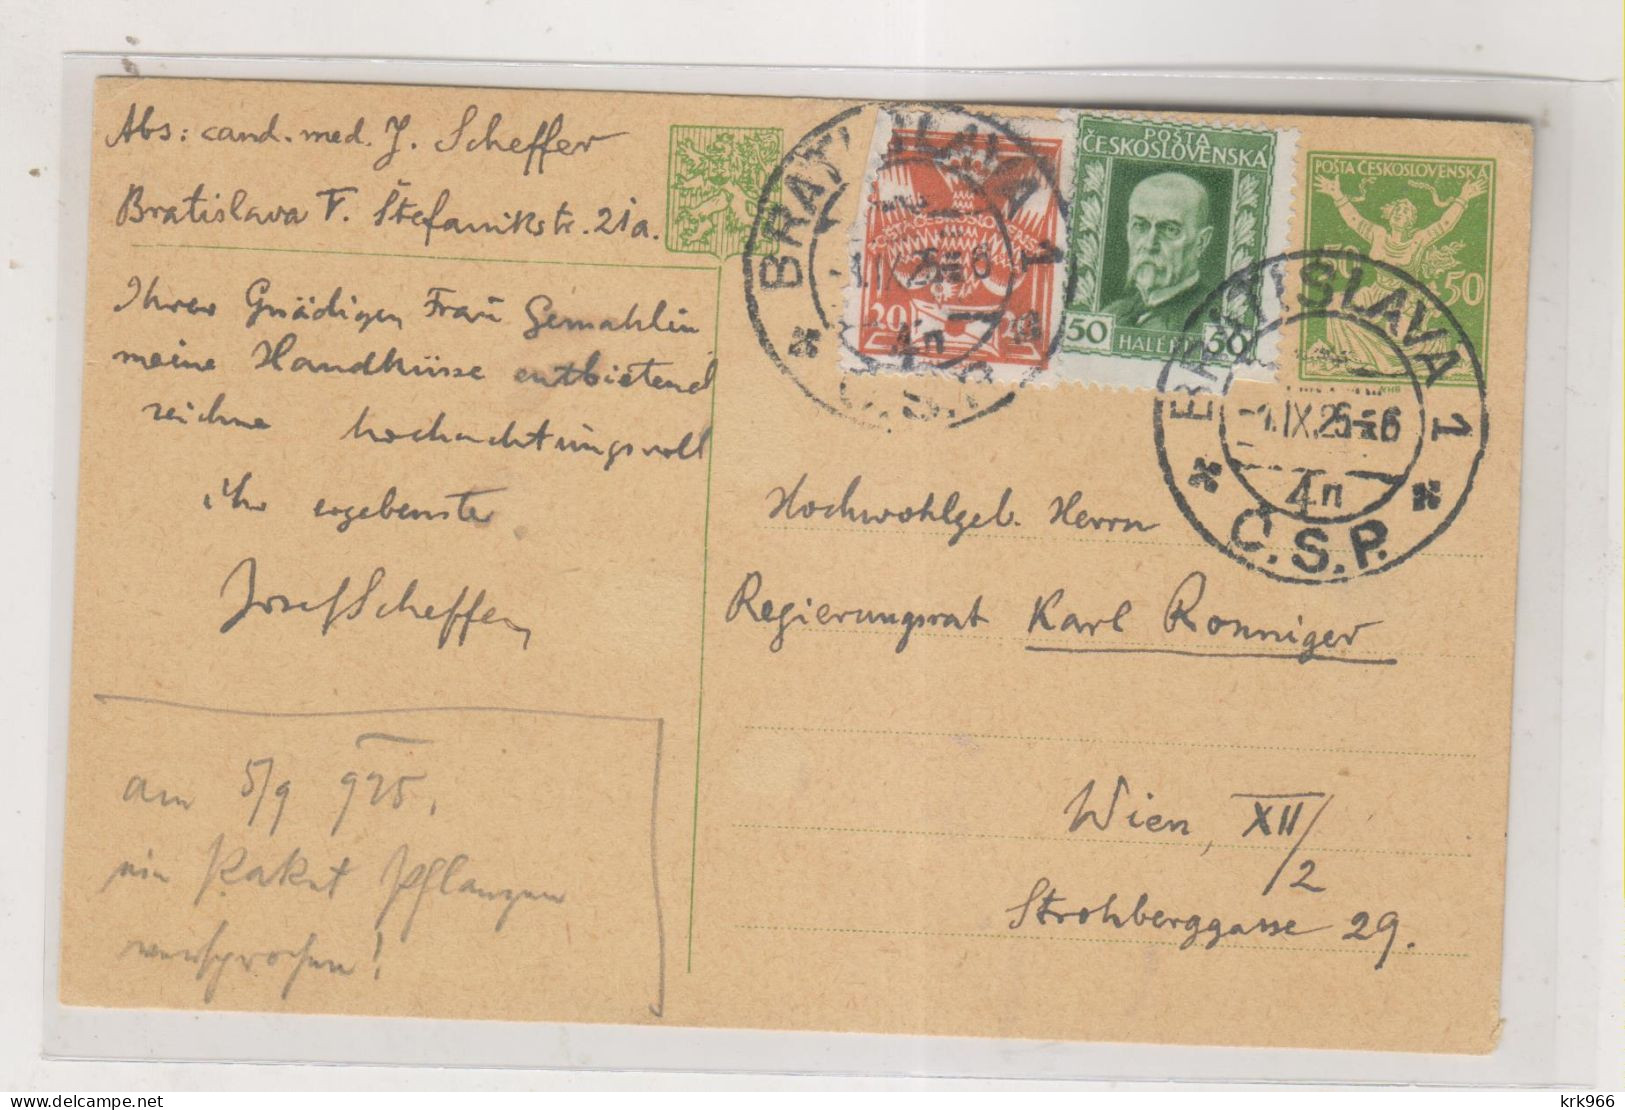 Abs: cand. med. J. Scheffer
Bratislava F. Štefanikstr. 21a.
Ihrer Gnädigen Frau Gemahlin
meine Handküsse entbietend
zeichne hochachtungsvoll
ihr ergebenster
Josef Scheffer
am 5/9 925,
ein Paket Pflanzen
versprochen!
BRATISLAVA 1
C.S.P.
POŠTA ČESKOSLOVENSKÁ
20 20
POŠTA
ČESKOSLOVENSKÁ
50 HALÉŘŮ 50
POŠTA ČESKOSLOVENSKÁ
50 50
BRATISLAVA 1
-1.IX.25-6
4n
C.S.P.
Hochwohlgeb. Herrn
Regierungsrat Karl Ronniger
Wien, XII/2
Strohberggasse 29.
krk966